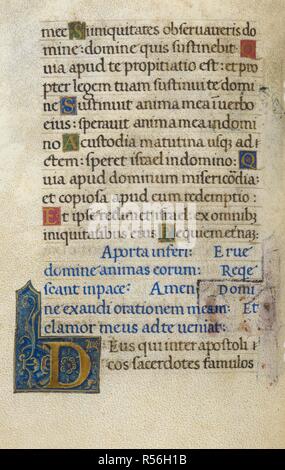 mee Si iniquitates obseruaueris do
mine: domine quis sustinebit: Q
uia apud te propitiatio est: et pro
pter legem tuam sustinui te domi
ne Sustinuit anima mea i uerbo
eius: sperauit anima mea in domi
no A custodia matutina usqȝ ad
ctem: speret israel in domino: Q
uia apud dominum misericōdia:
et copiosa apud eum redemptio:
Et ipse redimet israel: ex omnibȝ
iniquitatibus eius Requiem et̄naȝ:
A porta inferi: Erue
domine animas eorum: Reqe
scant in pace: Amen Domi
ne exaudi orationem meam: Et
clamor meus ad te ueniat:
DEus qui inter apostoli
cos sacerdotes famulos
alamy
alamy stock photo
R56H1B
www.alamy.com